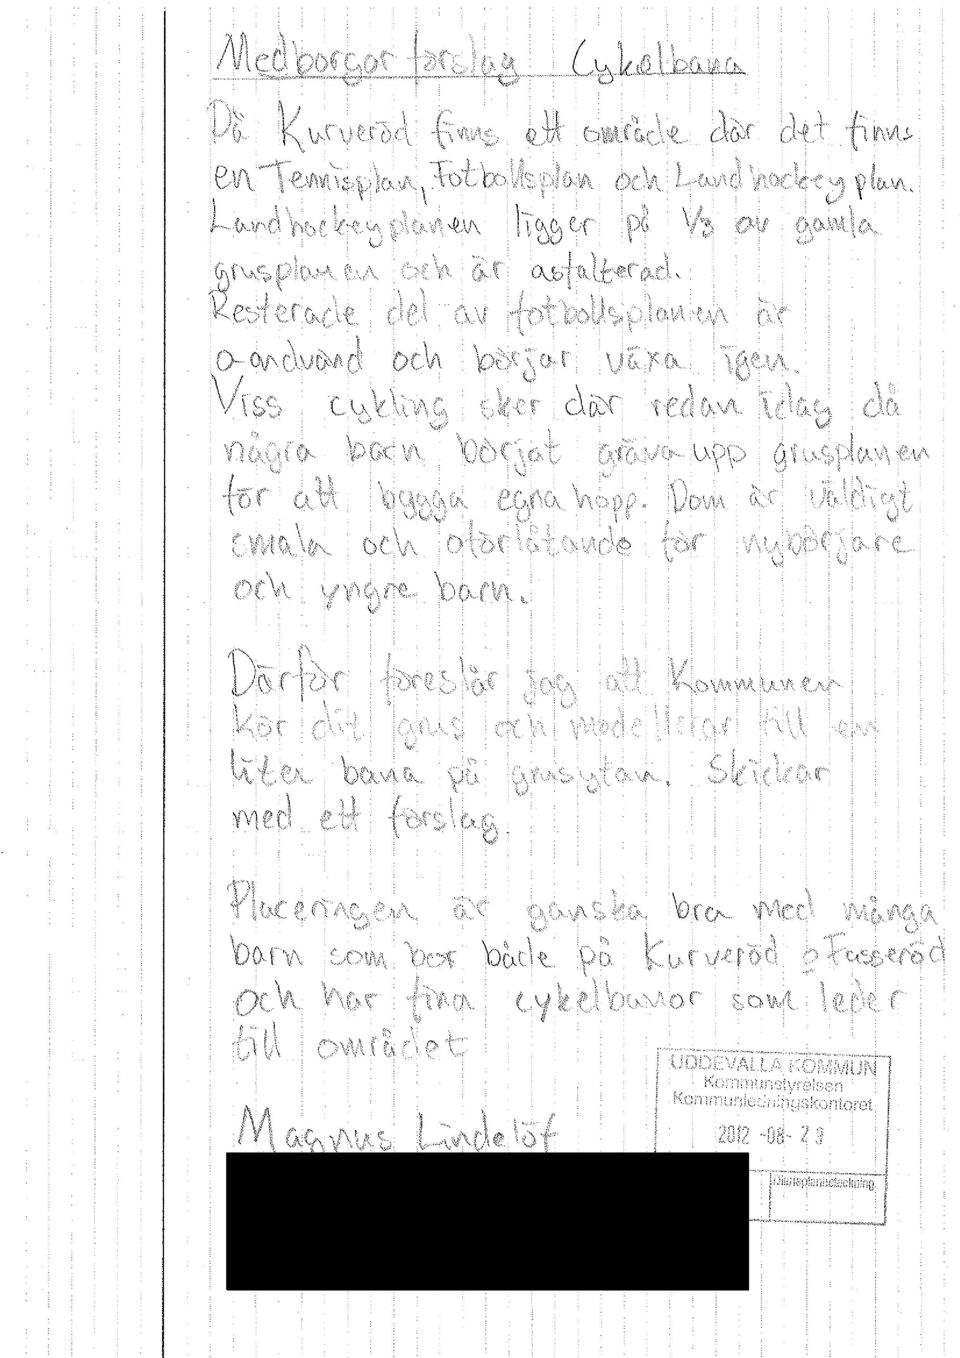 Medborgar förslag Cykelbana
På Kurveröd finns ett område där det finns
en Tennisplan, Fotbollsplan och Landhockeyplan.
Landhockeyplanen ligger på 1/3 av gamla
grusplanen och är asfalterad.
Resterade del av fotbollsplanen är
o-andvänd och börjar växa igen.
Viss cykling sker där redan idag då
några barn börjat gräva upp grusplanen
för att bygga egna hopp. Dom är väldigt
smala och oförlåtande för nybörjare
och yngre barn.
Därför föreslår jag att Kommunen
kör dit grus och modellerar till en
liten bana på grusytan. Skickar
med ett förslag.
Placeringen är ganska bra med många
barn som bor både på Kurveröd o Fasseröd
och har fina cykelbanor som leder
till området
Magnus Lindelöf
UDDEVALLA KOMMUN
Kommunstyrelsen
Kommunledningskontoret
2012 -08- 29
Diarieplanbeteckning